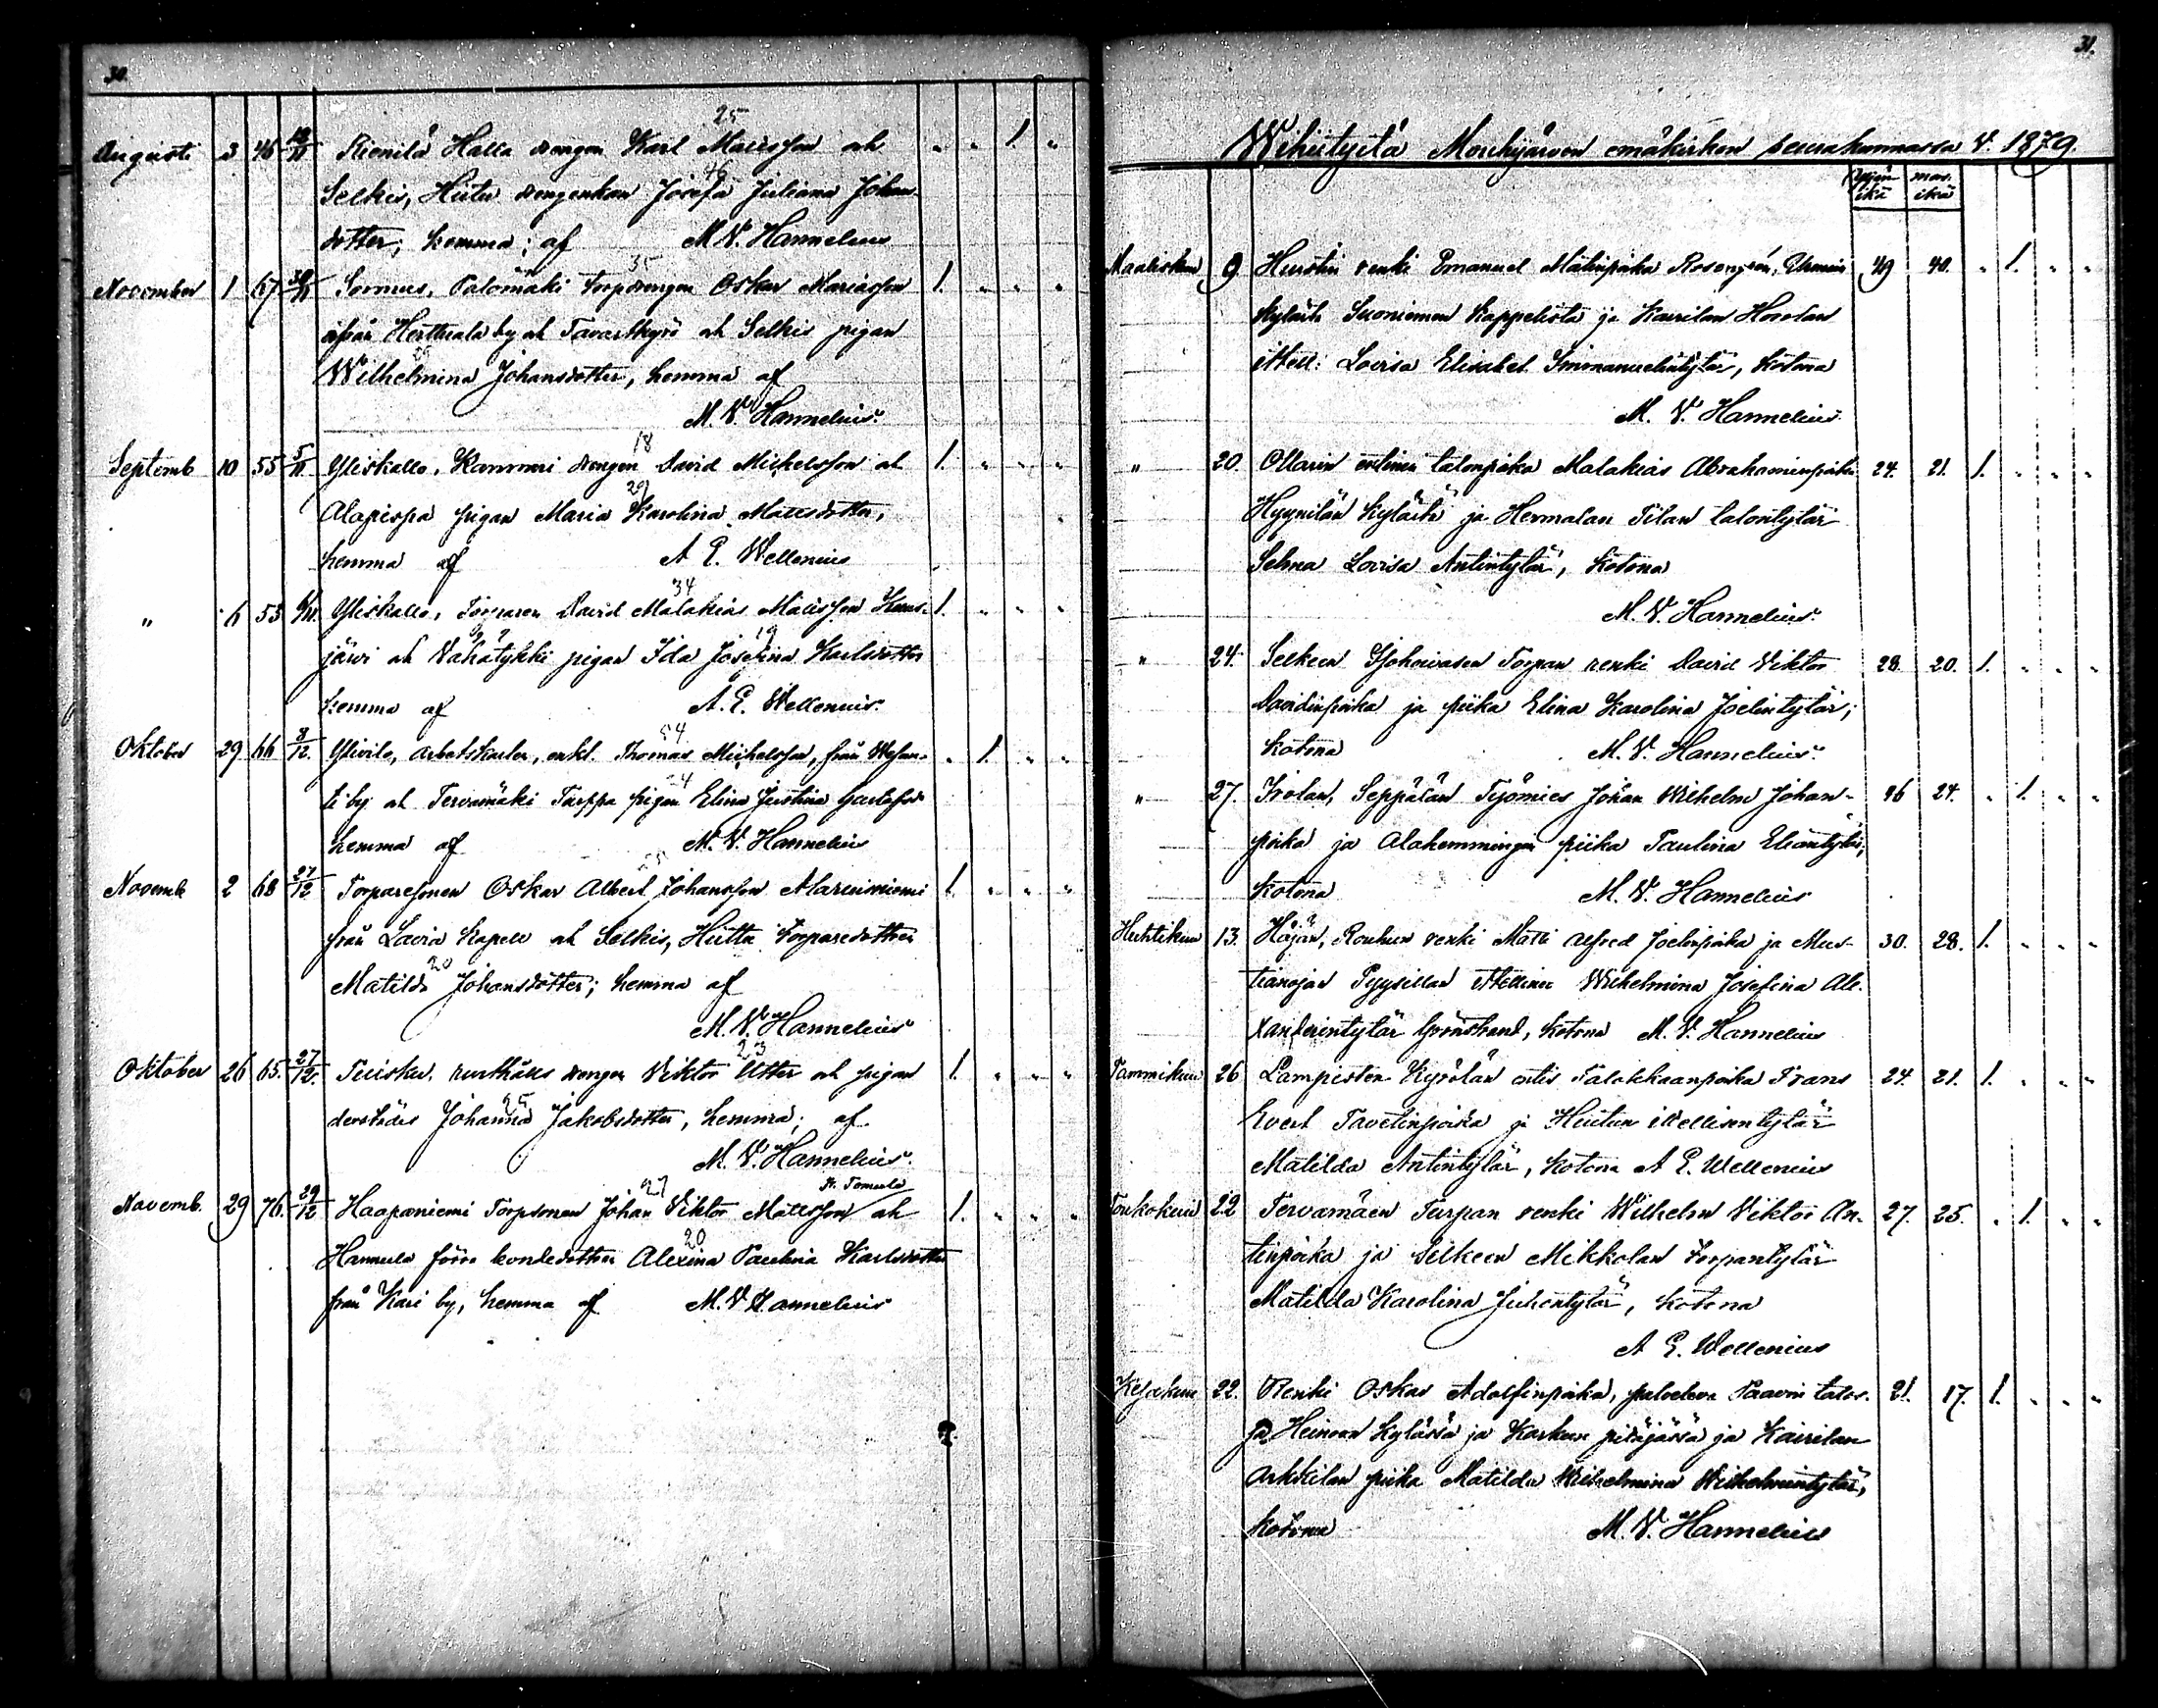 30.
25
Augusti 3 46 18/11 Kienilä Halla drengen Karl Mattsson och " " 1. "
46
Selkis, Hiitu drengenkan Josefa Juliana Johans
dotter; hemma; af M. V. Hannelius
35
November 1 67 30/11 Sormus, Palomäki torpdrengen Oskar Mariasson 1. " " "
ifrån Herttuala by och Tavastkyrö och Selkis pigan
Wilhelmina Johansdotter, hemma af
M. V. Hannelius.
18
Septemb 10 55 5/11 Yliskallo, Kammari drengen David Michelsson och 1. " " "
29
Alapispa pigan Maria Karolina Mattsdotter,
hemma af A. E. Wellenius
34
" 6 53 6/11. Yliskallo, Torparen David Malakias Mattsson Kaus- 1. " " "
19
järvi och Vahätykki pigan Ida Josefina Karlsdotter
hemma af A. E. Wellenius.
54
Oktober 29 66 8/12. Ylivilo, arbetskarlen, enkl. Thomas Michelsson, från Wesun- " 1. " "
24
ti by och Tervamäki Turppa pigan Elina Justina Gustafsd.
hemma af M. V. Hannelius
Novemb 2 68 27/12 Torparesonen Oskar Albert Johansson Marianiemi 1. " " "
från Lavia Kapell och Selkis, Hiitta torparedottren
20
Matilda Johansdotter; hemma af
M. V. Hannelius
23
Oktober 26 65. 27/12. Tuisku, rusthålls drengen Viktor Utter och pigan 1. " " "
25
derstädes Johanna Jakobsdotter, hemma; af
M. V. Hannelius.
27
Novemb. 29 76. 29/12 Haapaniemi Torpsonen Johan Viktor Mattsson och 1. " " "
20
Hannula förra bondedottren Alexina Paulina Karlsdotter
från Kari by, hemma af M. V. Hannelius
31.
Wihityitä Mouhijärven emäkirkon seurakunnassa V. 1879.
Yljän ikä mors. ikä
Maaliskun 9. Hurstin renki Emanuel Matinpoika Rosengrén, 49 40. " 1. " "
kylästä Suoniemen Kappelista ja Kairilan Hoodan
itsell: Lovisa Elisabet Immanuelintytär, kotona
M. V. Hannelius
" 20. Ollarin entinen talonpoika Malakias Abrahaminpoika 24. 21. 1. " " "
Hyynilän kylästä ja Hermalan Tilan talontytär
Selma Lovisa Antintytär, kotona
M. V. Hannelius.
" 24. Selkeen Torpan renki David Viktor 28. 20. 1. " " "
Davidinpoika ja piika Elina Karolina Joelintytär;
kotona M. V. Hannelius.
" 27. Irolan, Seppälän Työmies Johan Wilhelm Johan- 46 24. " 1. " "
poika ja Alahemmingin piika Paulina Eliantytär,
kotona M. V. Hannelius
Huhtikun 13. Häijän, Rouhun renki Matti Alfred Joelinpoika ja Mus- 30. 28. 1. " " "
tianojan Pyysillan itsellinen Wilhelmina Josefina Ale-
xanderintytär Grönstrand, kotona M. V. Hannelius
Tammikun 26 Lampisten Kyrölän entis Talokkaanpoika Frans 24. 21. 1. " " "
Evert Tavetinpoika ja Hiutun itsellisentytär
Matilda Antintytär, kotona A. E. Wellenius
Toukokuun 22 Tervamäen Turpan renki Wilhelm Viktor An- 27. 25. " 1. " "
tinpoika ja Selkeen Mikkolan torpantytär
Matilda Karolina Juhontytär, kotona
A. E. Wellenius
Kesäkuun 22. Renki Oskar Adolfinpoika, palveleva Paavin talos- 21. 17. 1. " " "
sa Heinoon kylässä ja Karkun pitäjässä ja Kairilan
Arkkilan piika Matilda Wilhelmina Wilhelmintytär,
kotona M. V. Hannelius